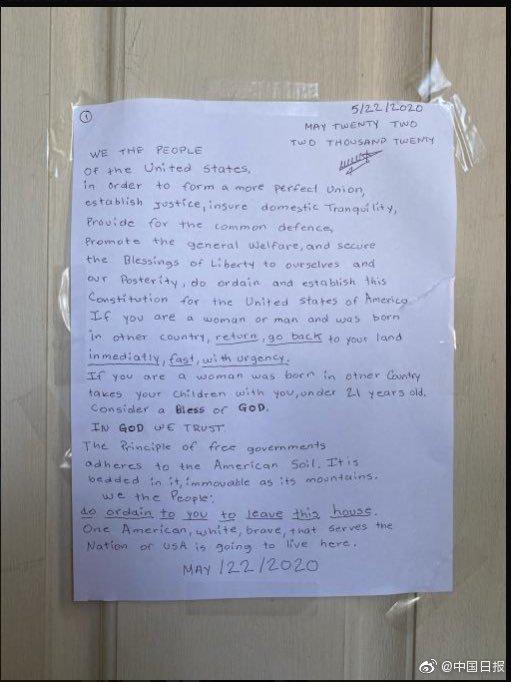 1
5/22/2020
MAY TWENTY TWO
TWO THOUSAND TWENTY
WE THE PEOPLE
Of the United States,
in order to form a more perfect Union,
establish Justice, insure domestic Tranquility,
Provide for the common defence,
Promote the general Welfare, and secure
the Blessings of Liberty to ourselves and
our Posterity, do ordain and establish this
Constitution for the United States of America
If you are a woman or man and was born
in other country, return, go back to your land
inmediatly, fast, with urgency.
If you are a woman was born in other Country
takes your children with you, under 21 years old.
Consider a Bless of GOD.
IN GOD WE TRUST.
The Principle of free governments
adheres to the American Soil. It is
bedded in it, immovable as its mountains.
We the People:
do ordain to you to leave this house.
One American, white, brave, that serves the
Nation or USA is going to live here.
MAY/22/2020
@中国日报